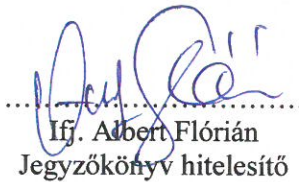 Ifj. Albert Flórián
Jegyzőkönyv hitelesítő